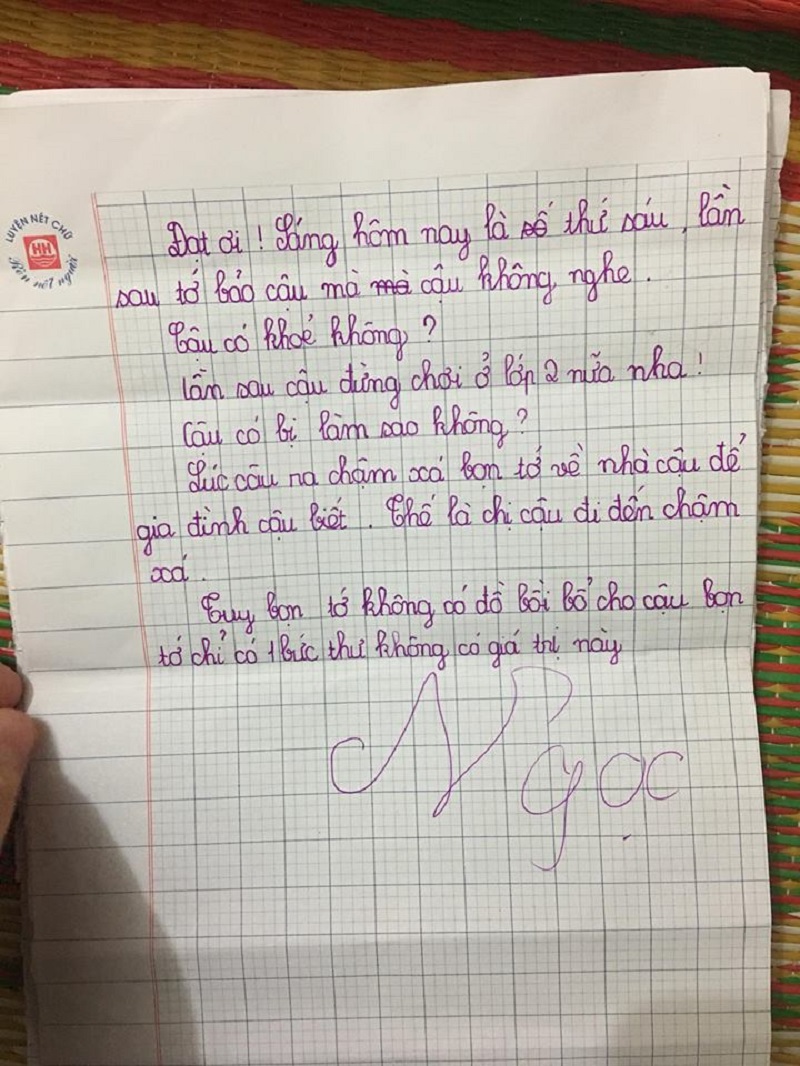 LUYỆN NÉT CHỮ
HH
Rèn nết người
Đạt ơi! Sáng hôm nay là số thứ sáu, lần
sau tớ bảo cậu mà mà cậu không nghe.
Cậu có khoẻ không?
Lần sau cậu đừng chơi ở lớp 2 nữa nha!
Cậu có bị làm sao không?
Lúc cậu na chậm xá bọn tớ về nhà cậu để
gia đình cậu biết. Thế là chị cậu đi đến chậm
xá.
Tuy bọn tớ không có đồ bồi bổ cho cậu bọn
tớ chỉ có 1 bức thư không có giá trị này
Ngọc